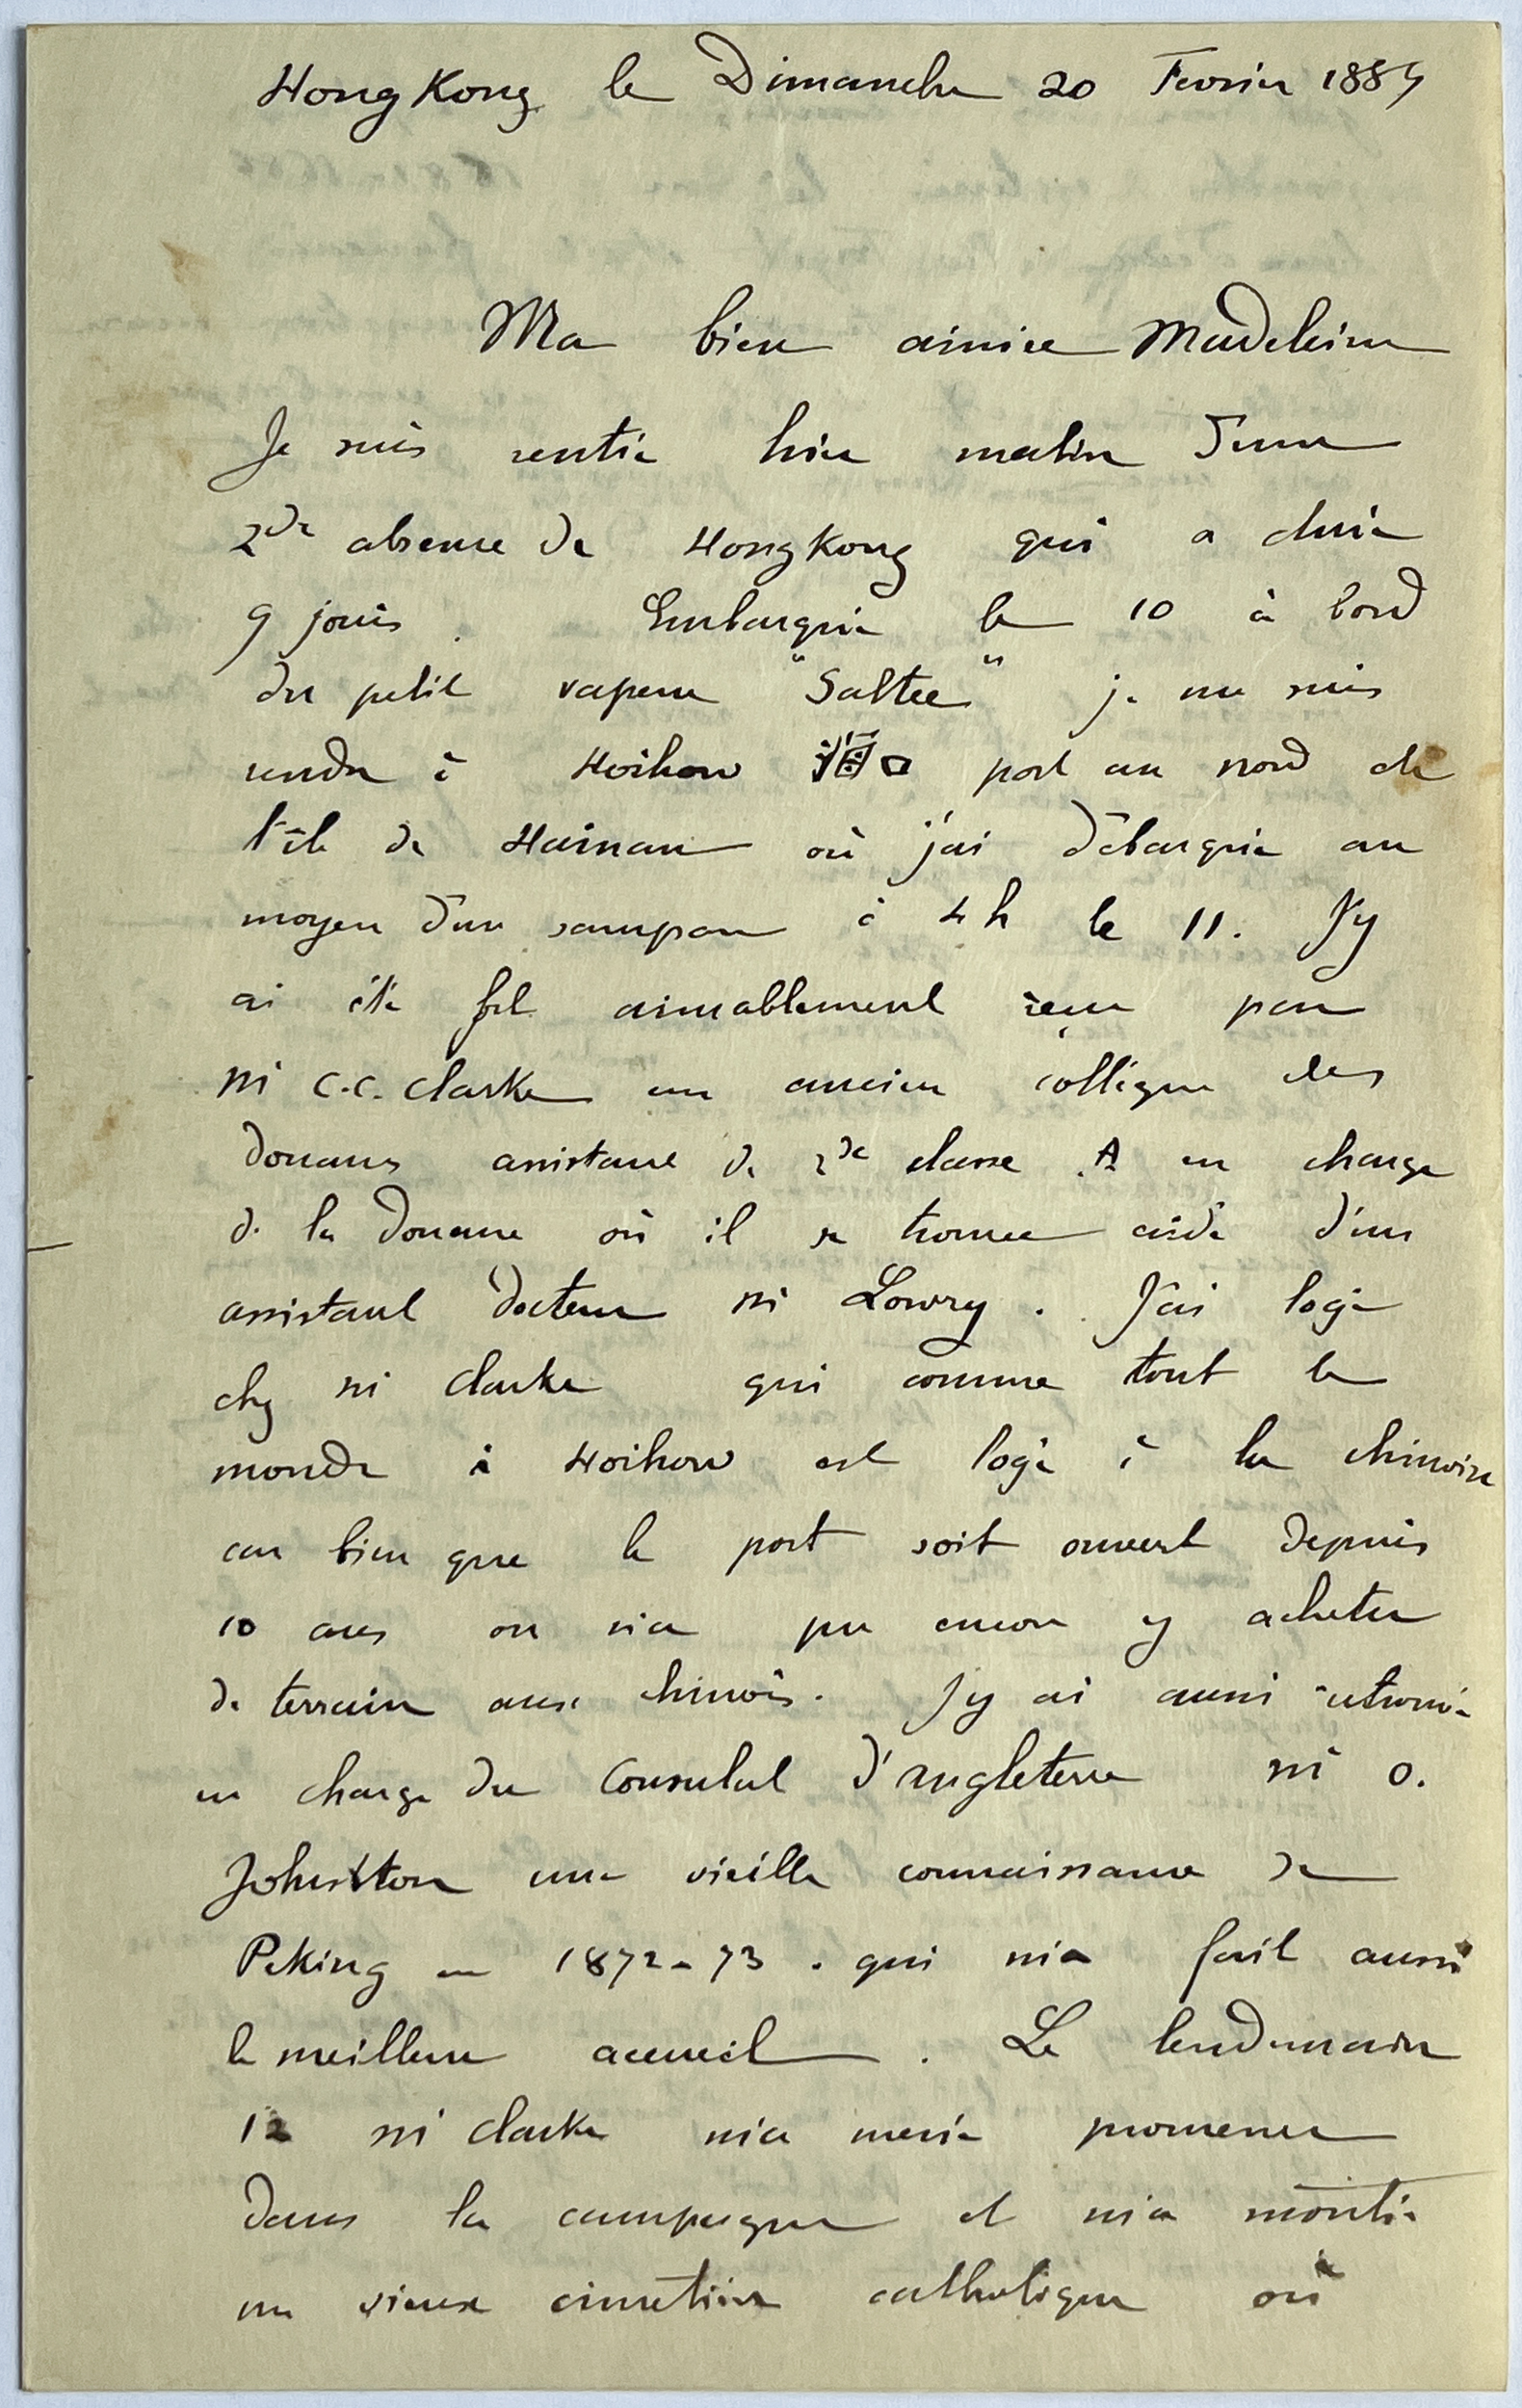 HongKong le Dimanche 20 Fevrier 1887
Ma bien aimée Madeleine
Je suis rentré hier matin d'une
2de absence de HongKong qui a duré
9 jours. Embarqué le 10 à bord
du petit vapeur "Saltee" je me suis
rendu à Hoihow 海口 port au nord de
l'île de Hainan où j'ai débarqué au
moyen d'un sampan à 4h le 11. J'y
ai été fort aimablement reçu par
Mr C.C. Clarke un ancien collègue des
Douanes assistant de 2de classe A en charge
de la Douane où il se trouve aidé d'un
assistant Docteur Mr Lowry. J'ai logé
chez Mr Clarke qui comme tout le
monde à Hoihow est logé à la chinoise
car bien que le port soit ouvert depuis
10 ans on n'a pu encore y acheter
de terrain aux chinois. J'y ai aussi retrouvé
en charge du Consulat d'Angleterre Mr O.
Johnston une vieille connaissance de
Peking en 1872-73. qui m'a fait aussi
le meilleur accueil. Le lendemain
12 Mr Clarke m'a mené promener
dans la campagne et m'a montré
un vieux cimetière catholique où